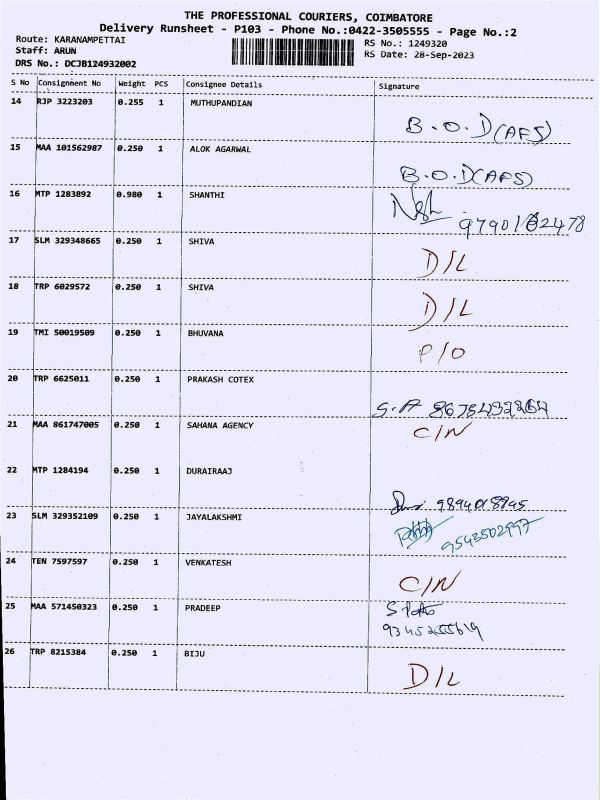 THE PROFESSIONAL COURIERS, COIMBATORE
Delivery Runsheet - P103 - Phone No.:0422-3505555 - Page No.:2
Route: KARANAMPETTAI
RS No.: 1249320
Staff: ARUN
RS Date: 28-Sep-2023
DRS No.: DCJB124932002
S No Consignment No Weight PCS Consignee Details Signature
14 RJP 3223203 0.255 1 MUTHUPANDIAN
B.O.D(AFS)
15 MAA 101562987 0.250 1 ALOK AGARWAL
B.O.D(AFS)
16 MTP 1283892 0.980 1 SHANTHI
17 SLM 329348665 0.250 1 SHIVA
D/L
18 TRP 6029572 0.250 1 SHIVA
D/L
19 TMI 50019509 0.250 1 BHUVANA
P/O
20 TRP 6625011 0.250 1 PRAKASH COTEX
S.A
21 MAA 861747005 0.250 1 SAHANA AGENCY
C/N
22 MTP 1284194 0.250 1 DURAIRAAJ
23 SLM 329352109 0.250 1 JAYALAKSHMI
9543502997
24 TEN 7597597 0.250 1 VENKATESH
C/N
25 MAA 571450323 0.250 1 PRADEEP
26 TRP 8215384 0.250 1 BIJU
D/L